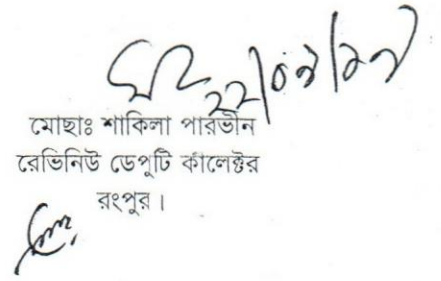 ২২/০৯/১৯
মোছাঃ শাকিলা পারভীন
রেভিনিউ ডেপুটি কালেক্টর
রংপুর।